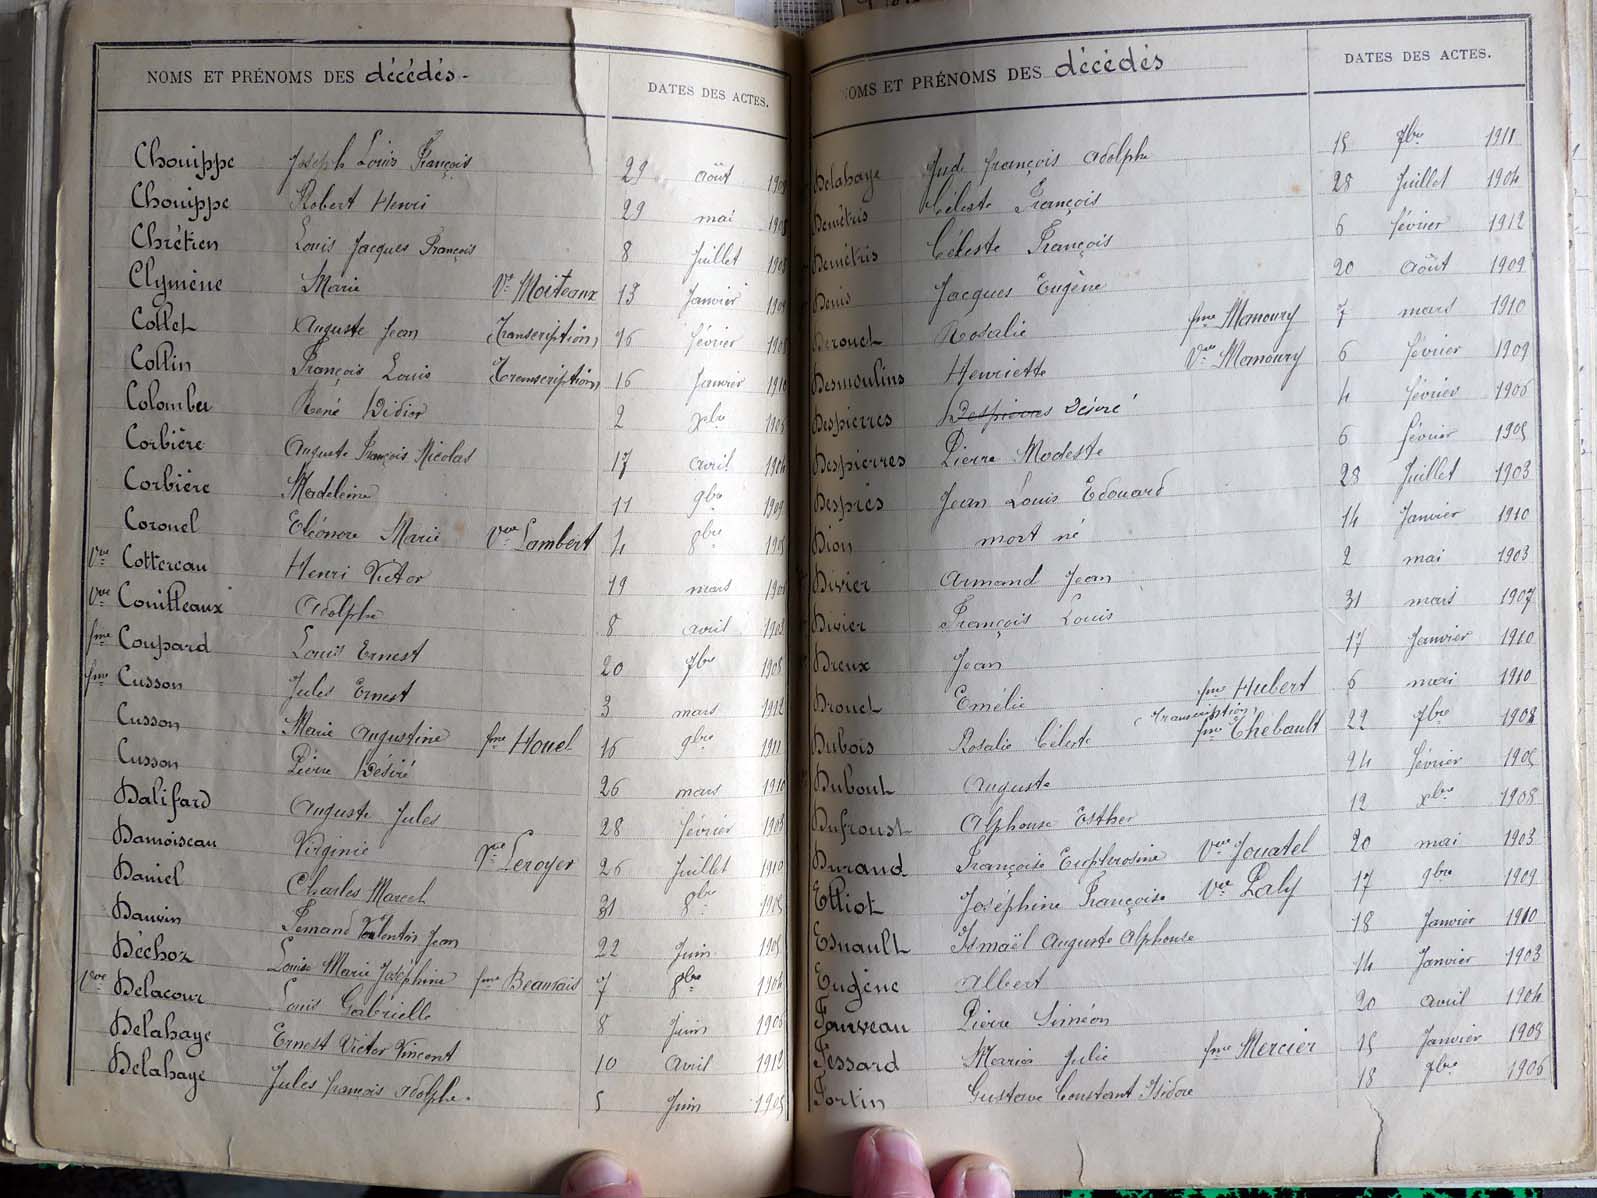 NOMS ET PRÉNOMS DES décédés - DATES DES ACTES.
Chouippe Joseph Louis François 29 août
Chouippe Robert Henri 29 mai
Chrétien Louis Jacques François 8 Juillet
Clymène Marie Vve Moiteaux 13 Janvier
Collet Auguste Jean (Transcription) 16 février
Collin François Louis (Transcription) 16 Janvier 1910
Colomber René Didier 2 xbre
Corbière Auguste François Nicolas 17 avril
Corbière Madeleine 11 9bre 1909
Coronel Eléonore Marie Vve Lambert 4 8bre
Vve Cottereau Henri Victor 19 mars
Vve Couilleaux Adolphe 8 avril
fme Coupard Louis Ernest 20 7bre
fme Cusson Jules Ernest 3 mars 1912
Cusson Marie Augustine fme Houel 16 9bre 1911
Cusson Pierre Désiré 26 mars 1910
Dalifard Auguste Jules 28 février
Damoiseau Virginie Vve Leroyer 26 Juillet 1910
Daniel Charles Marcel 31 8bre
Dauvin Fernand Valentin Jean 22 Juin
Déchoz Louise Marie Joséphine fme Beauvais 7 8bre
Vve Delacour Louis Gabrielle 8 Juin 1906
Delahaye Ernest Victor Vincent 10 Avril 1912
Delahaye Jules françois adolphe. 5 Juin
NOMS ET PRÉNOMS DES décédés DATES DES ACTES.
Delahaye Jud françois adolphe 15 7bre 1911
Demétris Céleste François 28 Juillet 1904
Demétris Céleste François 6 février 1912
Denis Jacques Eugène 20 août 1909
Derouet Rosalie fme Manoury 7 mars 1910
Desmoulins Henriette Vve Manoury 6 février 1909
Despierres Despierres Désiré 4 février 1906
Despierres Pierre Modeste 6 février 1905
Desprès Jean Louis Edouard 28 Juillet 1903
Dion mort né 14 Janvier 1910
Divier Armand Jean 2 mai 1903
Divier François Louis 31 mars 1907
Dreux Jean 17 Janvier 1910
Drouet Emélie fme Hubert 6 mai 1910
Dubois Rosalie Céleste (Transcription) fme Chebault 22 7bre 1908
Dubout Auguste 24 février 1905
Dufroust Alphonse Esther 12 xbre 1908
Durand Françoise Euphrosine Vve Jouatel 20 mai 1903
Elliot Joséphine Françoise Vve Laly 17 9bre 1909
Esnault Ismaël Auguste Alphonse 18 Janvier 1910
Eugène Albert 14 Janvier 1903
Fauveau Pierre Siméon 20 avril 1904
Fessard Maria Julie fme Mercier 15 Janvier 1908
Fortin Gustave Constant Isidore 18 7bre 1906